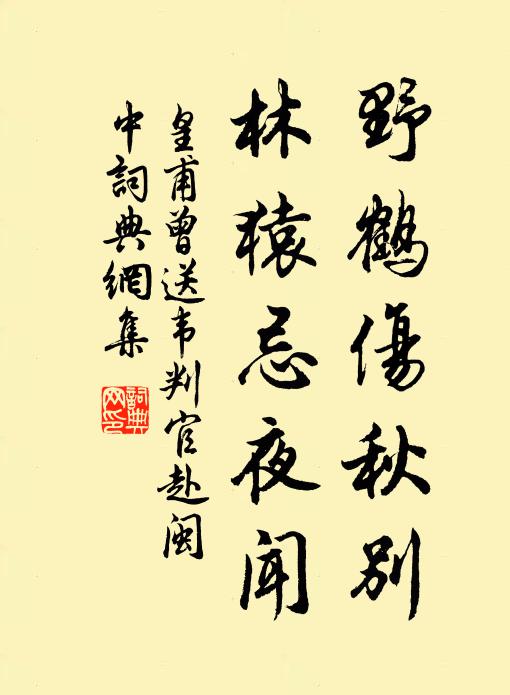 野鶴傷秋別
林猿忌夜聞
皇甫曾送韦判官赴闽
中詞典網集
詞典
网印